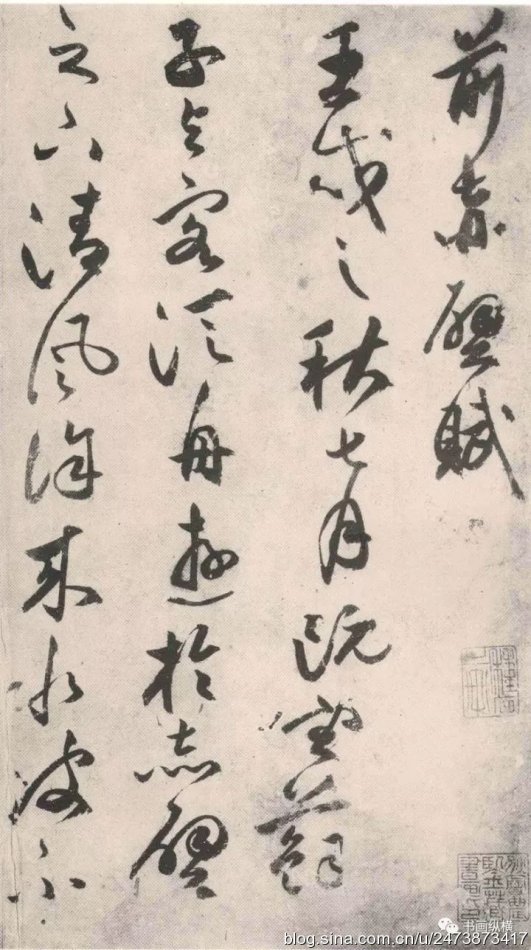 前赤壁賦
壬戌之秋七月既望蘇
子與客泛舟遊於赤壁
之下清風徐來水波不
书画纵横
blog.sina.com.cn/u/2473873417